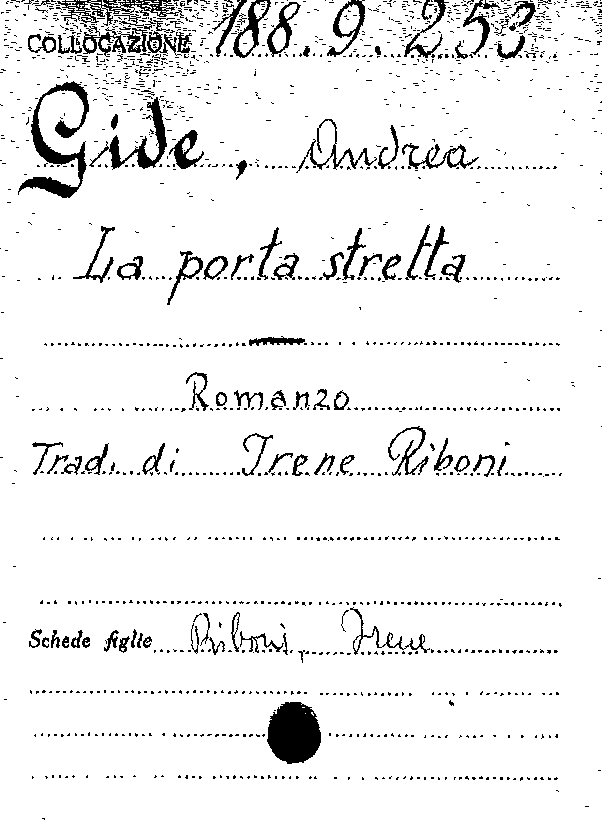 COLLOCAZIONE 188.9.253
Gide, Andrea
La porta stretta
Romanzo
Trad. di Irene Riboni
Schede figlie Riboni, Irene